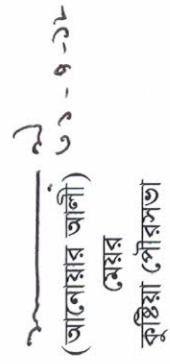 ৩১-৭-১৮
(আনোয়ার আলী)
মেয়র
কুষ্টিয়া পৌরসভা